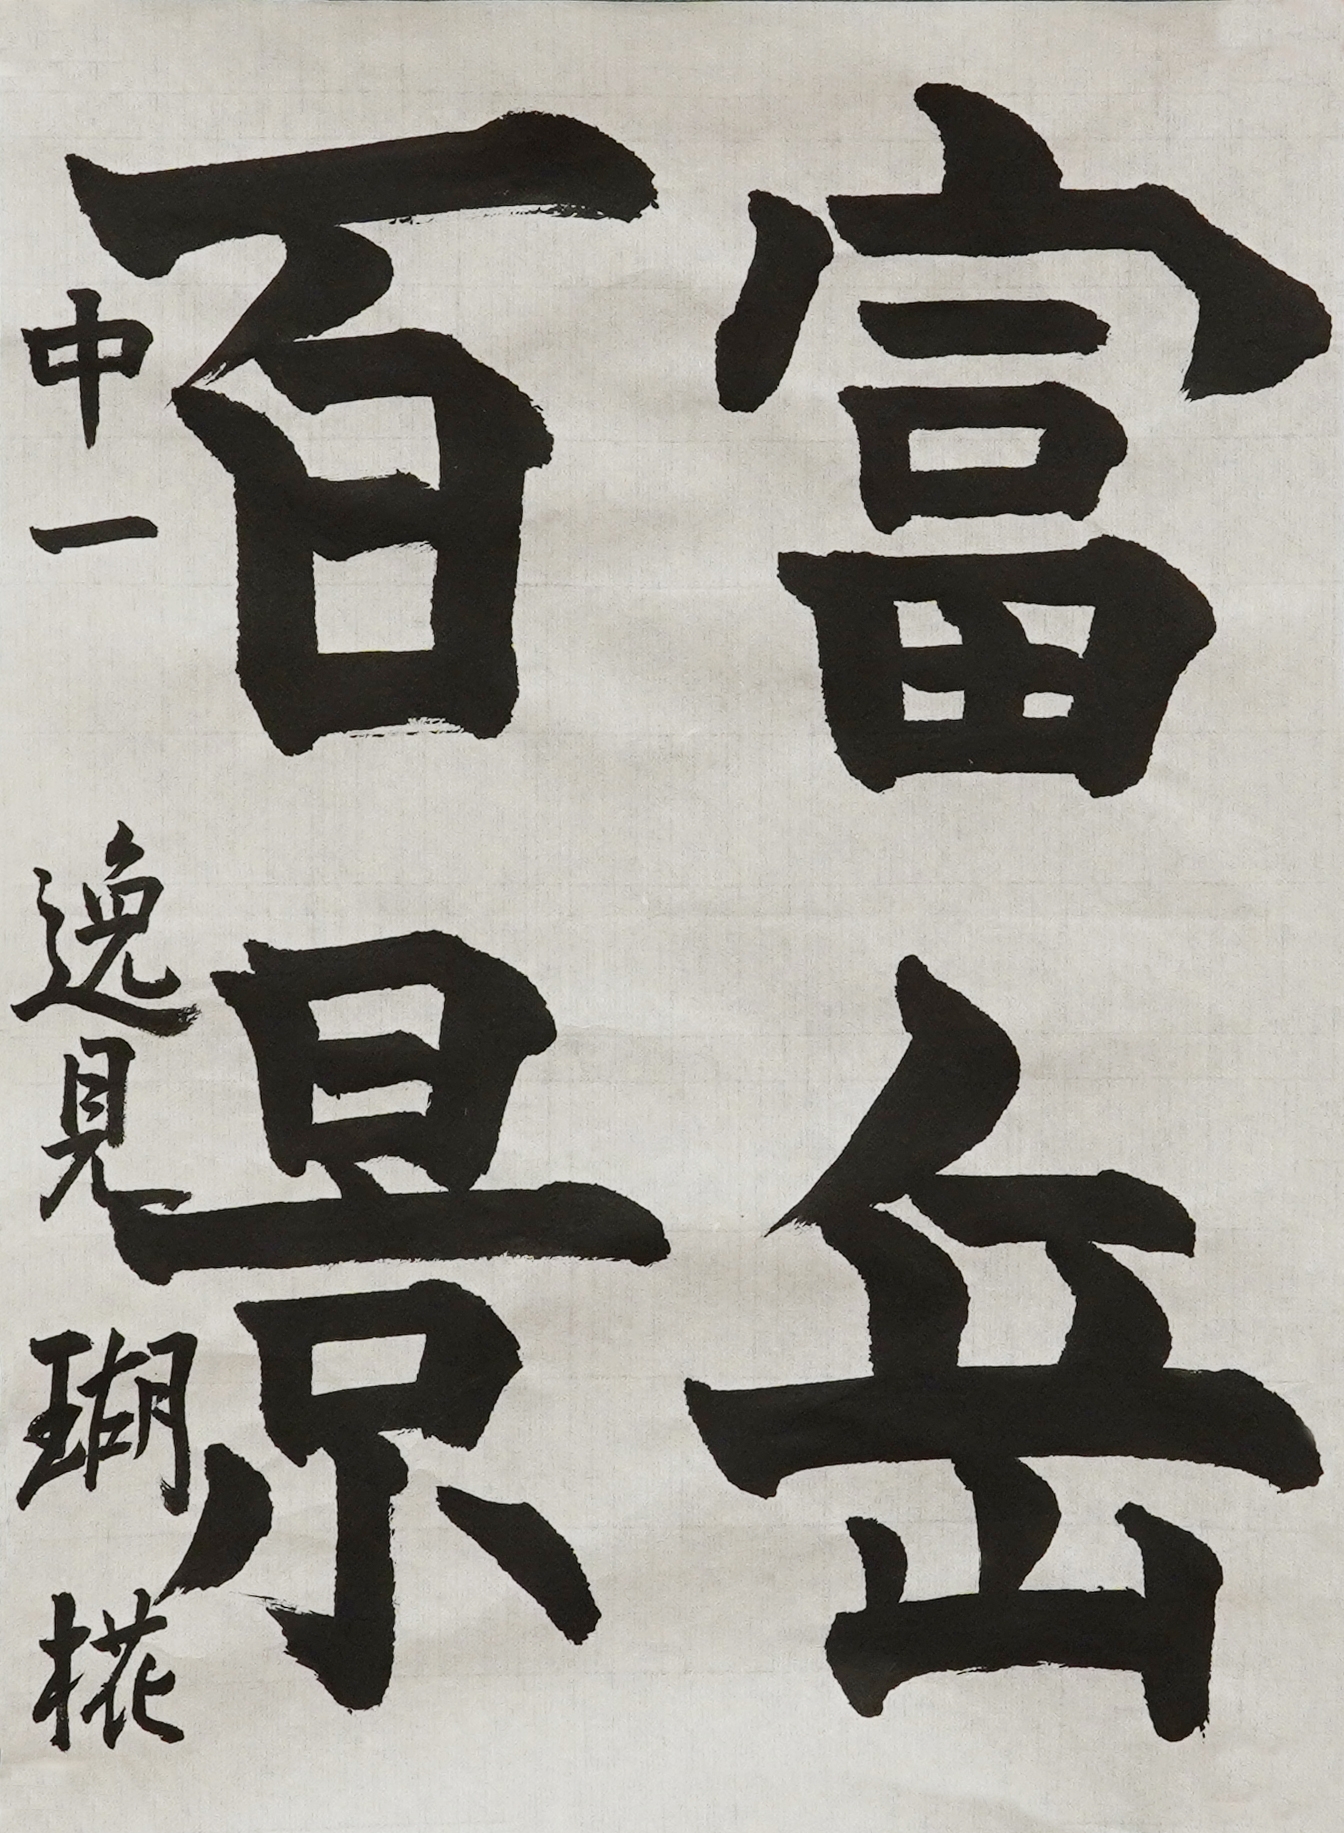 富岳
百景
中一 逸見瑚椛